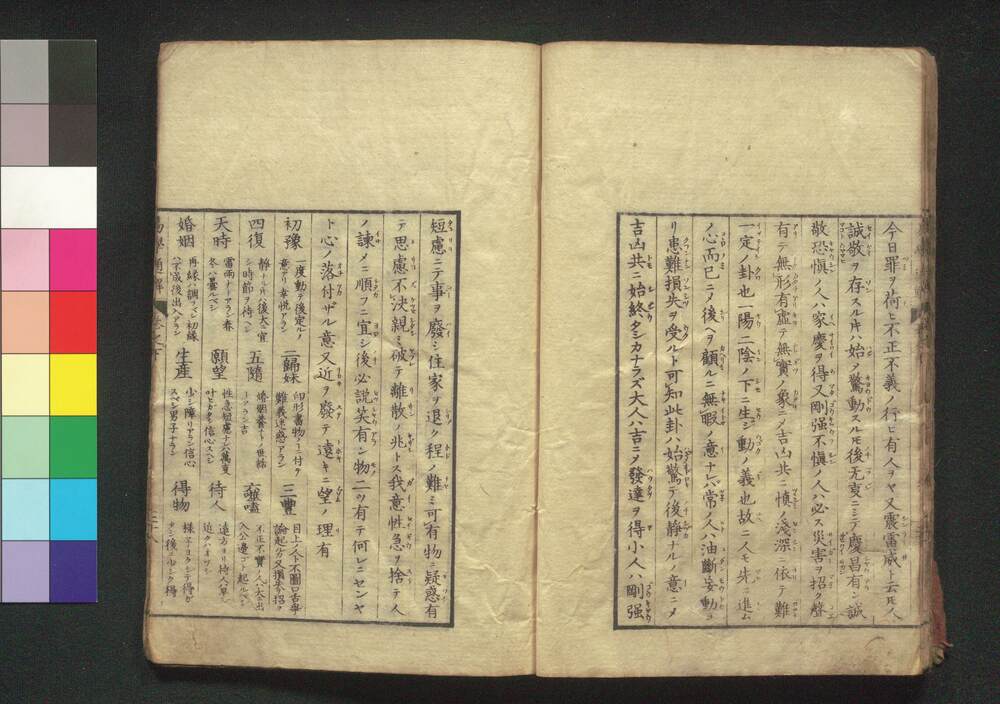 今日罪ヲ荷ヒ不正不義ノ行ヒ有人ヲヤ又震雷威ト云モ人
誠敬ヲ存スル片ハ始メ驚動スルモ後无妄ニシテ慶昌有シ誠
敬恐愼ノ人ハ家慶ヲ得又剛强不愼ノ人ハ必ス災害ヲ招ク聲
有テ無形有虚テ無實ノ象ニメ吉凶共ニ愼ノ淺深ニ依テ難
一定ノ卦也一陽二陰ノ下ニ生シ動ノ義也故ニ人モ先ニ進ム
ノ心而已ニメ後ヘヲ顧ルニ無暇ノ意ナレハ常ノ人ハ油斷妄動ヨ
リ患難損失ヲ受ルト可知此卦ハ始驚テ後静ナルノ意ニメ
吉凶共ニ始終タシカナラズ大人ハ吉ニメ發達ヲ得小人ハ剛强
短慮ニテ事ヲ廢シ住家ヲ退ク程ノ難ミ可有物ニ疑惑有
テ思慮不決親ミ破テ離散ノ兆トス我意性急ヲ捨テ人
ノ諌メニ順フニ宜シ後必説笑有ン物二ツ有テ何レニセンヤ
ト心ノ落付ザル意又近ヲ廢テ遠キニ望ノ理有
初豫 一度動テ後定ルノ意アリ幸悦アラン 二歸妹 印形書物ノヿニ付ヲ難義迷惑アラン 三豐 目上ノ人ト不圖口舌爭論起ル
四復 静ナル片ハ後大ニ宜シ時節ヲ待ヘシ 五隨 婚姻養子ノ世話 噬嗑 不正不實ノ人ハ大
天時 雷雨ナドアラン春冬ハ曇ルベシ 願望 性急短慮ナレハ萬変叶ヒガタシ信心スベシ 待人 遠方ヨリ待人ハ早シ近クハオソシ
婚姻 再縁ハ調フベシ初縁ハ不成後出入アラン 生産 少シ障リアラン信心スベシ男子ナラン 得物 様子ヨクシテ得ガタシ後ニ少シク得